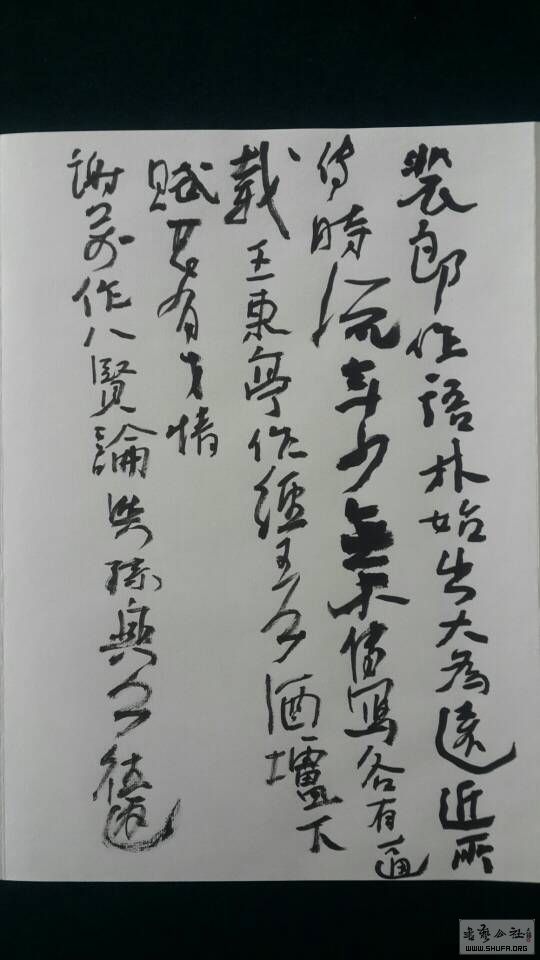 裴郎作語林始出大為遠近所
傳時流年少無不傳寫各有一通
載王東亭作經王公酒壚下
賦甚有才情
謝萬作八賢論與孫興公往返
书艺公社
WWW.SHUFA.ORG